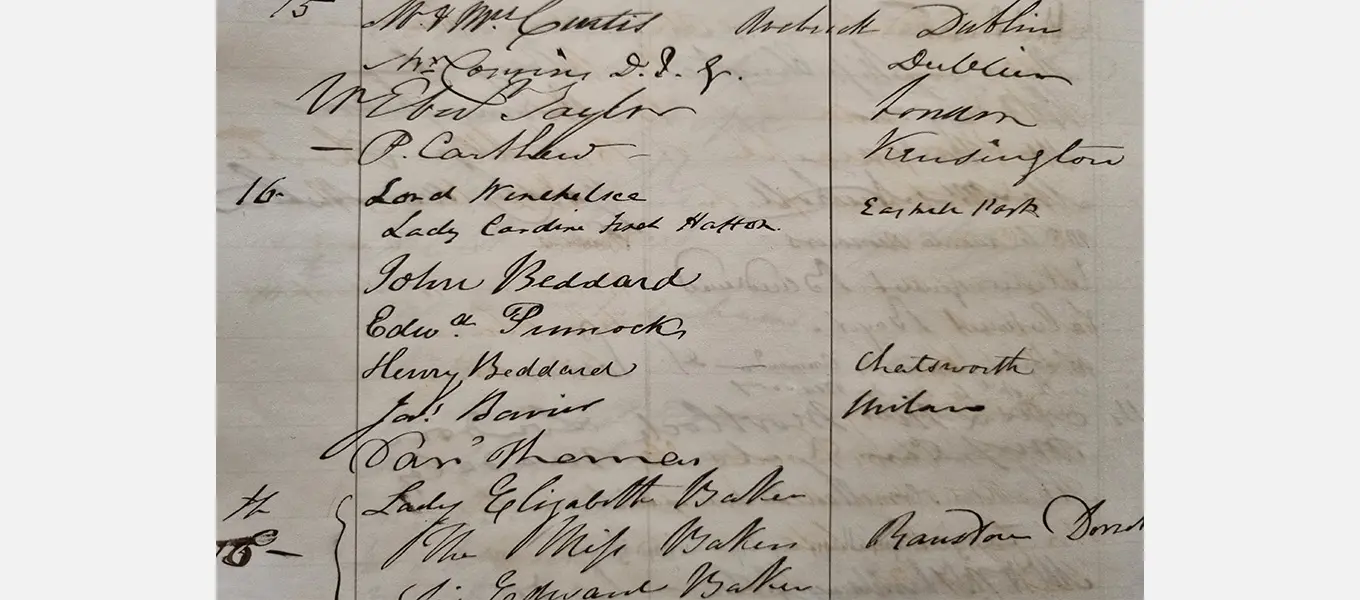 15 Mr & Mrs Curtis Roebuck Dublin
Mrs D. J. Dublin
Mr Eben Taylor London
— P. Carthew — Kensington
16 Lord Winchelsea
Lady Caroline Finch Hatton. Eastwell Park
John Beddard
Edwd Pinnock
Henry Beddard Chatsworth
Jas. Milano
Danl Thomas
Lady Elizabeth Baker
th The Miss Bakers Ranston Dorset
16 — Sir Edward Baker